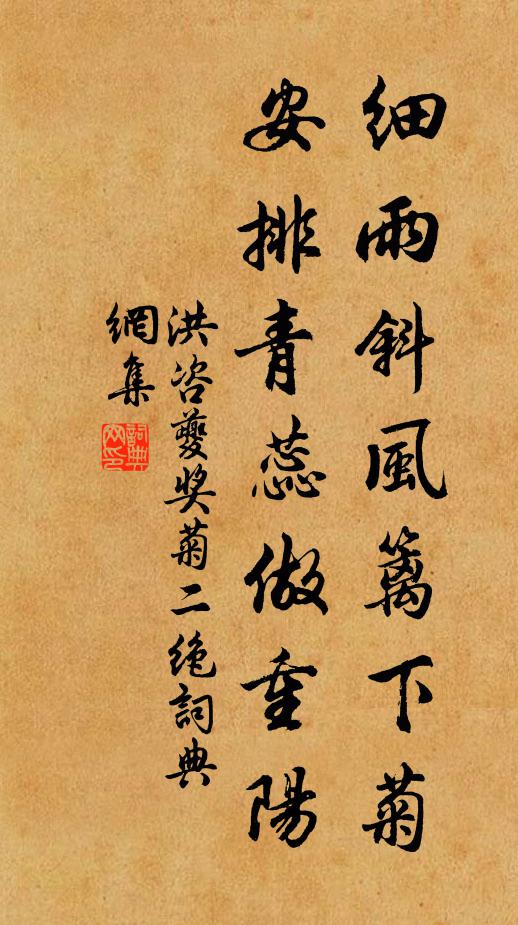 細雨斜風籬下菊
安排青蕊做重陽
洪咨夔奖菊二绝詞典
網集
詞典
网印